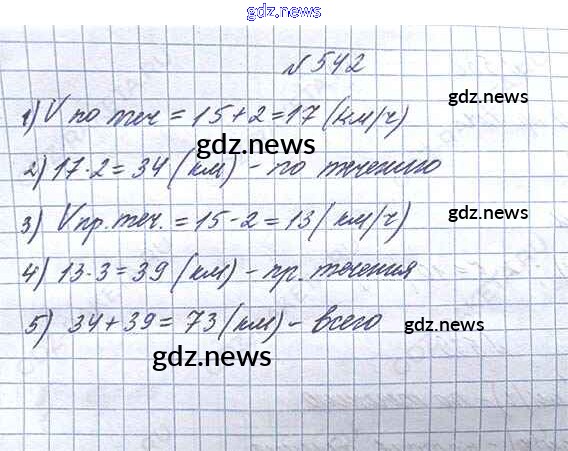 gdz.news
N 542
gdz.news
1) V по теч = 15+2=17 (км/ч)
gdz.news
2) 17·2=34 (км) - по течению
3) Vпр.теч. = 15-2=13 (км/ч)
gdz.news
4) 13·3=39 (км) - пр. течения
5) 34+39=73 (км) - всего
gdz.news
gdz.news